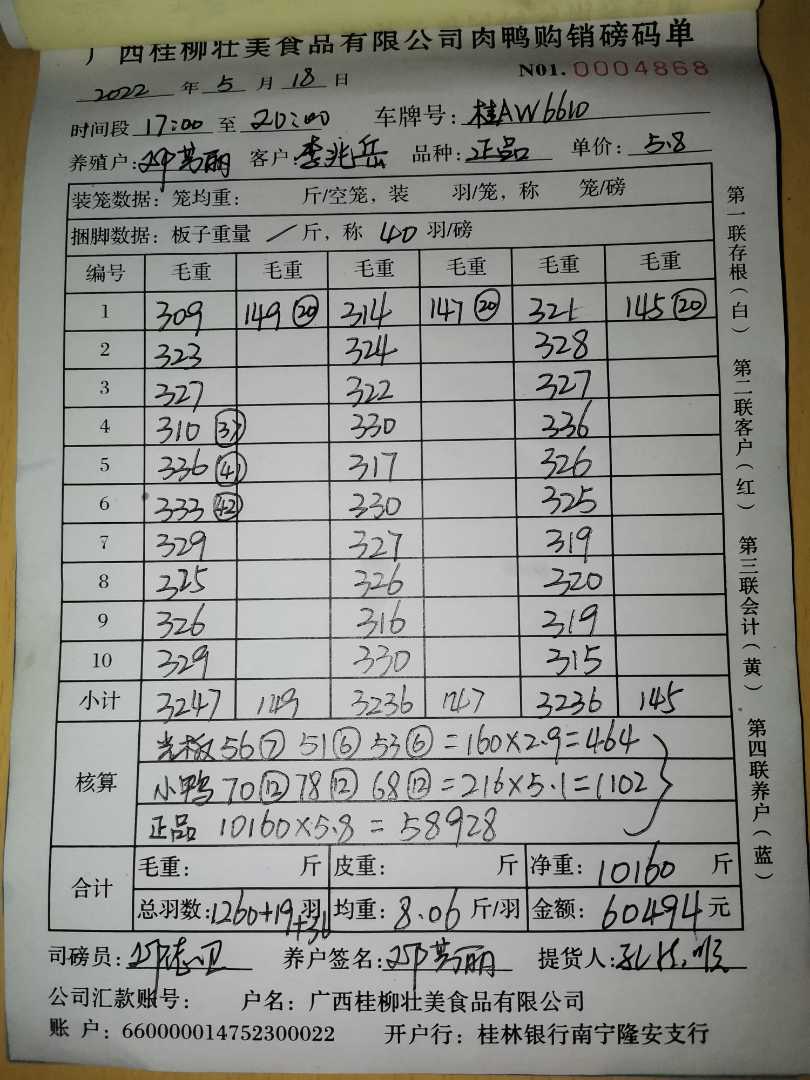 广西桂柳壮美食品有限公司肉鸭购销磅码单
2022 年 5 月 18 日 N01. 0004868
时间段 17:00 至 20:00 车牌号: 桂AW6610
养殖户: 邓芳丽 客户: 李兆岳 品种: 正品 单价: 5.8
装笼数据: 笼均重: 斤/空笼, 装 羽/笼, 称 笼/磅
捆脚数据: 板子重量 / 斤, 称 40 羽/磅
编号 毛重 毛重 毛重 毛重 毛重 毛重
1 309 149 (20) 314 147 (20) 321 145 (20)
2 323 324 328
3 327 322 327
4 310 (37) 330 336
5 336 (41) 317 326
6 333 (42) 330 325
7 329 327 319
8 325 326 320
9 326 316 319
10 329 330 315
小计 3247 149 3236 147 3236 145
核算 光板 56 (7) 51 (6) 53 (6) = 160×2.9 = 464
小鸭 70 (12) 78 (12) 68 (12) = 216×5.1 = 1102
正品 10160×5.8 = 58928
合计 毛重: 斤 皮重: 斤 净重: 10160 斤
总羽数: 1260+19+36 羽 均重: 8.06 斤/羽 金额: 60494 元
司磅员: 养户签名: 邓芳丽 提货人:
公司汇款账号: 户名: 广西桂柳壮美食品有限公司
账 户: 660000014752300022 开户行: 桂林银行南宁隆安支行
第一联存根(白) 第二联客户(红) 第三联会计(黄) 第四联养户(蓝)